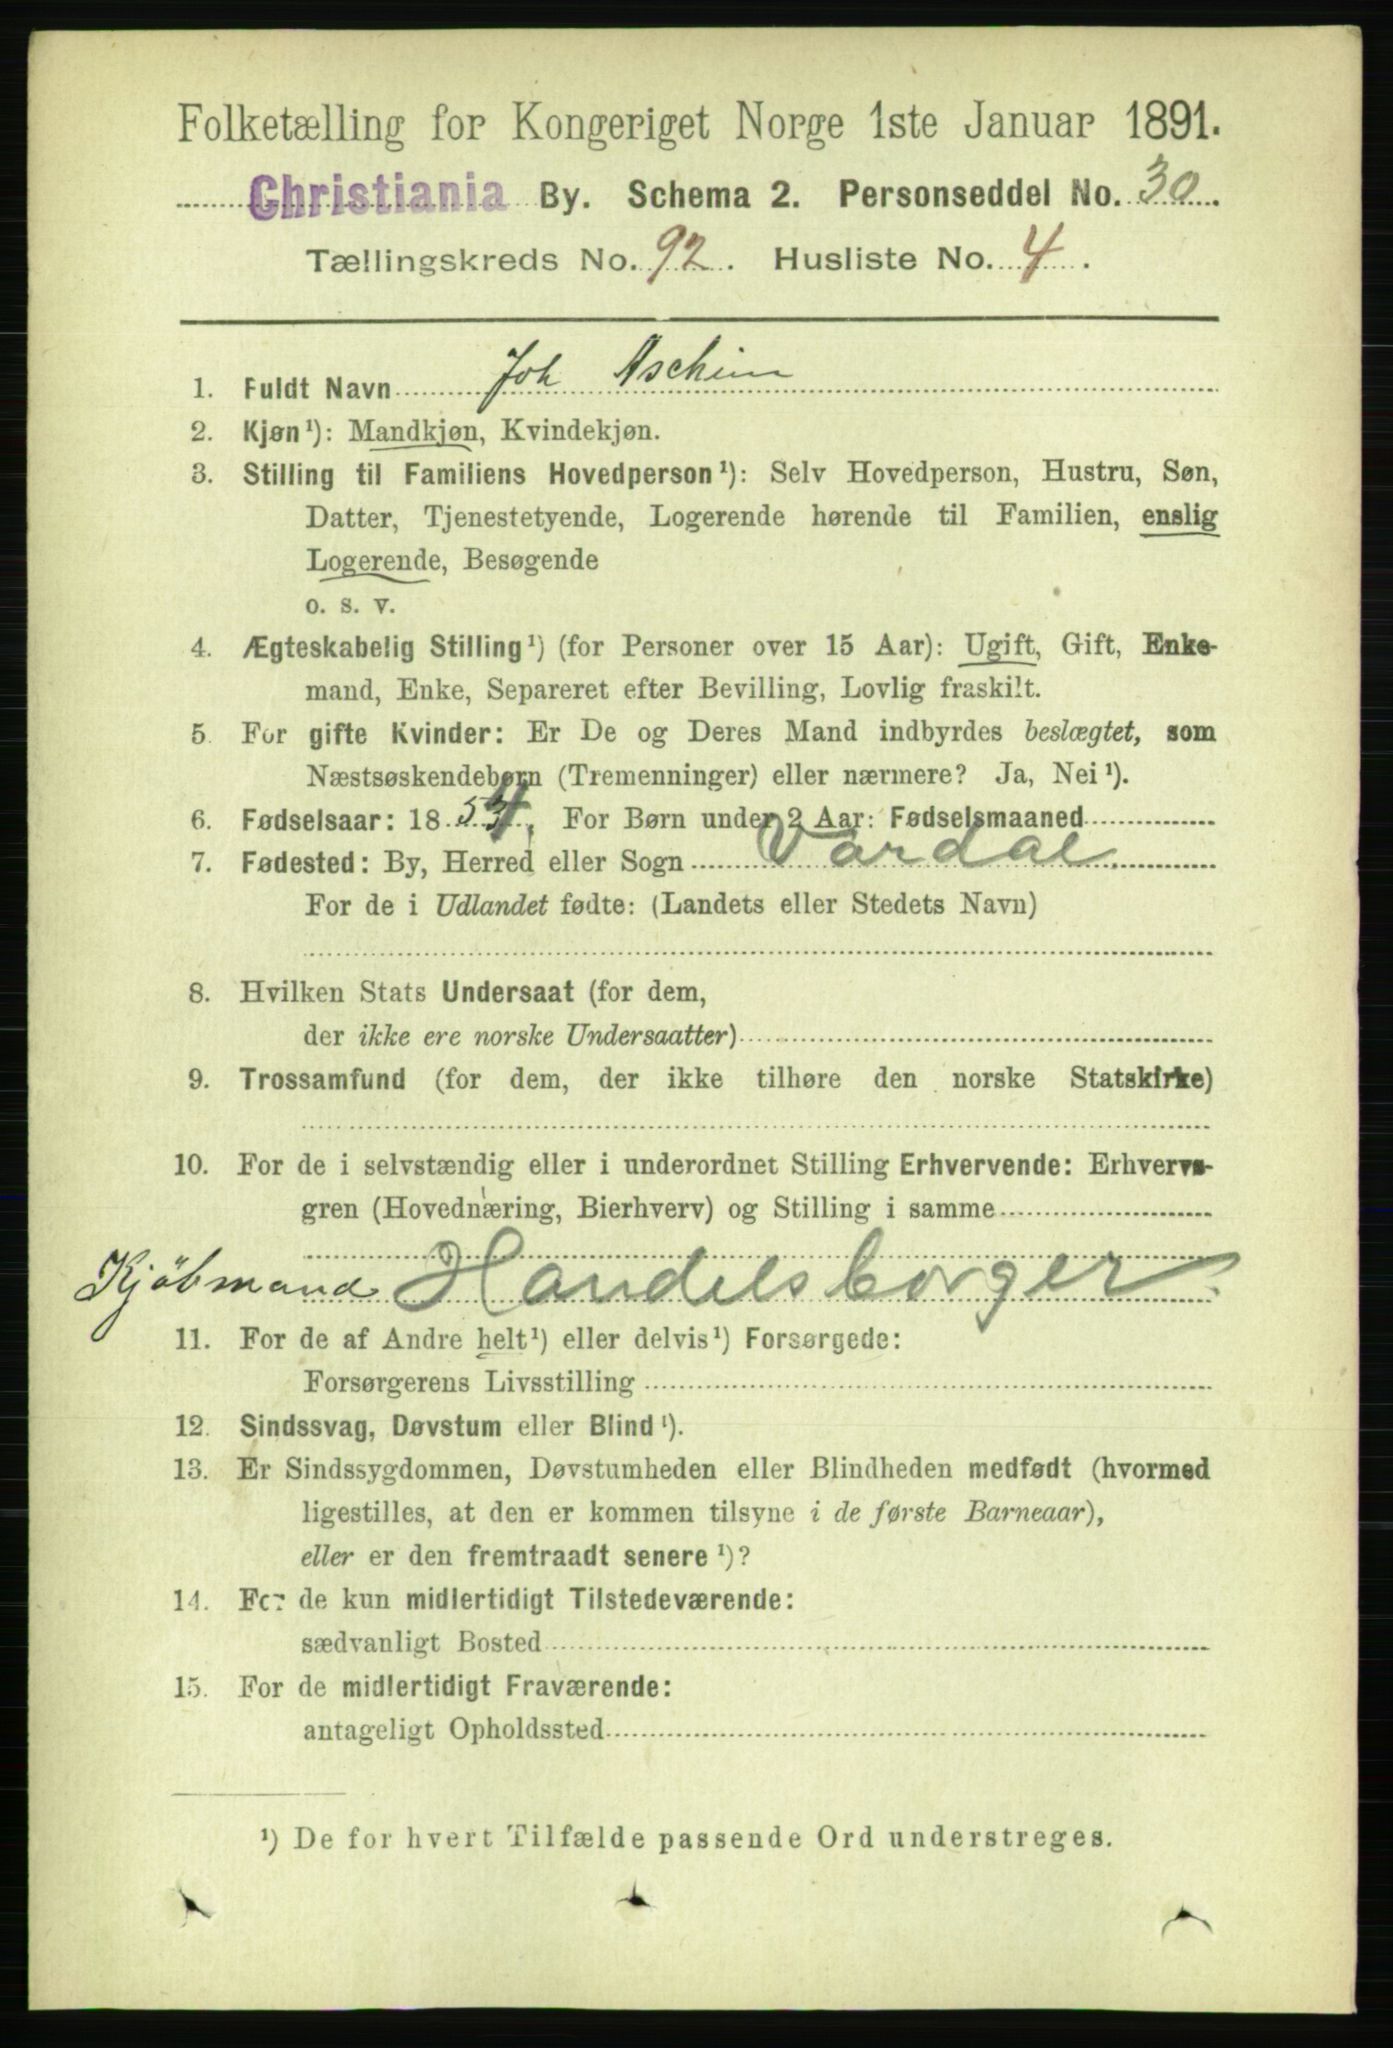 Folketælling for Kongeriget Norge 1ste Januar 1891.
Christiania By. Schema 2. Personseddel No. 30.
Tællingskreds No. 92. Husliste No. 4.
1. Fuldt Navn Joh Aschim
2. Kjøn¹): Mandkjøn, Kvindekjøn.
3. Stilling til Familiens Hovedperson¹): Selv Hovedperson, Hustru, Søn,
Datter, Tjenestetyende, Logerende hørende til Familien, enslig
Logerende, Besøgende
o. s. v.
4. Ægteskabelig Stilling¹) (for Personer over 15 Aar): Ugift, Gift, Enke-
mand, Enke, Separeret efter Bevilling, Lovlig fraskilt.
5. For gifte Kvinder: Er De og Deres Mand indbyrdes beslægtet, som
Næstsøskendebørn (Tremenninger) eller nærmere? Ja, Nei¹).
6. Fødselsaar: 1854. For Børn under 2 Aar: Fødselsmaaned
7. Fødested: By, Herred eller Sogn Vardal
For de i Udlandet fødte: (Landets eller Stedets Navn)
8. Hvilken Stats Undersaat (for dem,
der ikke ere norske Undersaatter)
9. Trossamfund (for dem, der ikke tilhøre den norske Statskirke)
10. For de i selvstændig eller i underordnet Stilling Erhvervende: Erhvervs-
gren (Hovednæring, Bierhverv) og Stilling i samme
Kjøbmand Handelsborger
11. For de af Andre helt¹) eller delvis¹) Forsørgede:
Forsørgerens Livsstilling
12. Sindssvag, Døvstum eller Blind¹).
13. Er Sindssygdommen, Døvstumheden eller Blindheden medfødt (hvormed
ligestilles, at den er kommen tilsyne i de første Barneaar),
eller er den fremtraadt senere¹)?
14. For de kun midlertidigt Tilstedeværende:
sædvanligt Bosted
15. For de midlertidigt Fraværende:
antageligt Opholdssted
¹) De for hvert Tilfælde passende Ord understreges.